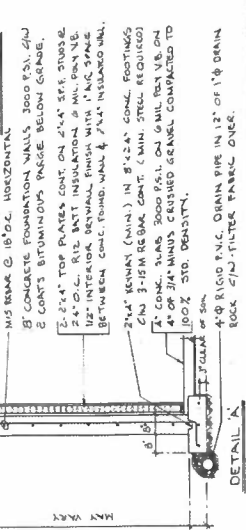 M15 REBAR @ 18" O.C. HORIZONTAL
8" CONCRETE FOUNDATION WALLS 3000 P.S.I. C/W
2 COATS BITUMINOUS PARGE BELOW GRADE.
2-2"x4" TOP PLATES CONT. ON 2"x4" S.P.F. STUDS @
24" O.C. R12 BATT INSULATION 6 MIL. POLY V.B.
1/2" INTERIOR DRYWALL FINISH WITH 1" AIR SPACE
BETWEEN CONC. FOUND. WALL & 2"x4" INSULATED WALL.
2"x4" KEYWAY (MIN.) IN 8"x24" CONC. FOOTINGS
C/W 3-15M REBAR CONT. (MIN. STEEL REQUIRED)
4" CONC. SLAB 3000 P.S.I. ON 6 MIL POLY V.B. ON
4" OF 3/4" MINUS CRUSHED GRAVEL COMPACTED TO
100% STD. DENSITY.
3" CLEAR OF SOIL
4" Φ RIGID P.V.C. DRAIN PIPE IN 12" OF 1" Φ DRAIN
ROCK C/W FILTER FABRIC OVER.
MAY VARY
8"
8"
DETAIL 'A'